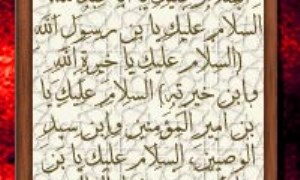 السلام عليك يا بن رسول الله
(السلام عليك يا خيرة الله
وابن خيرته) السلام عليك يا
بن امير المؤمنين وابن سيد
الوصيين، السلام عليك يا بن